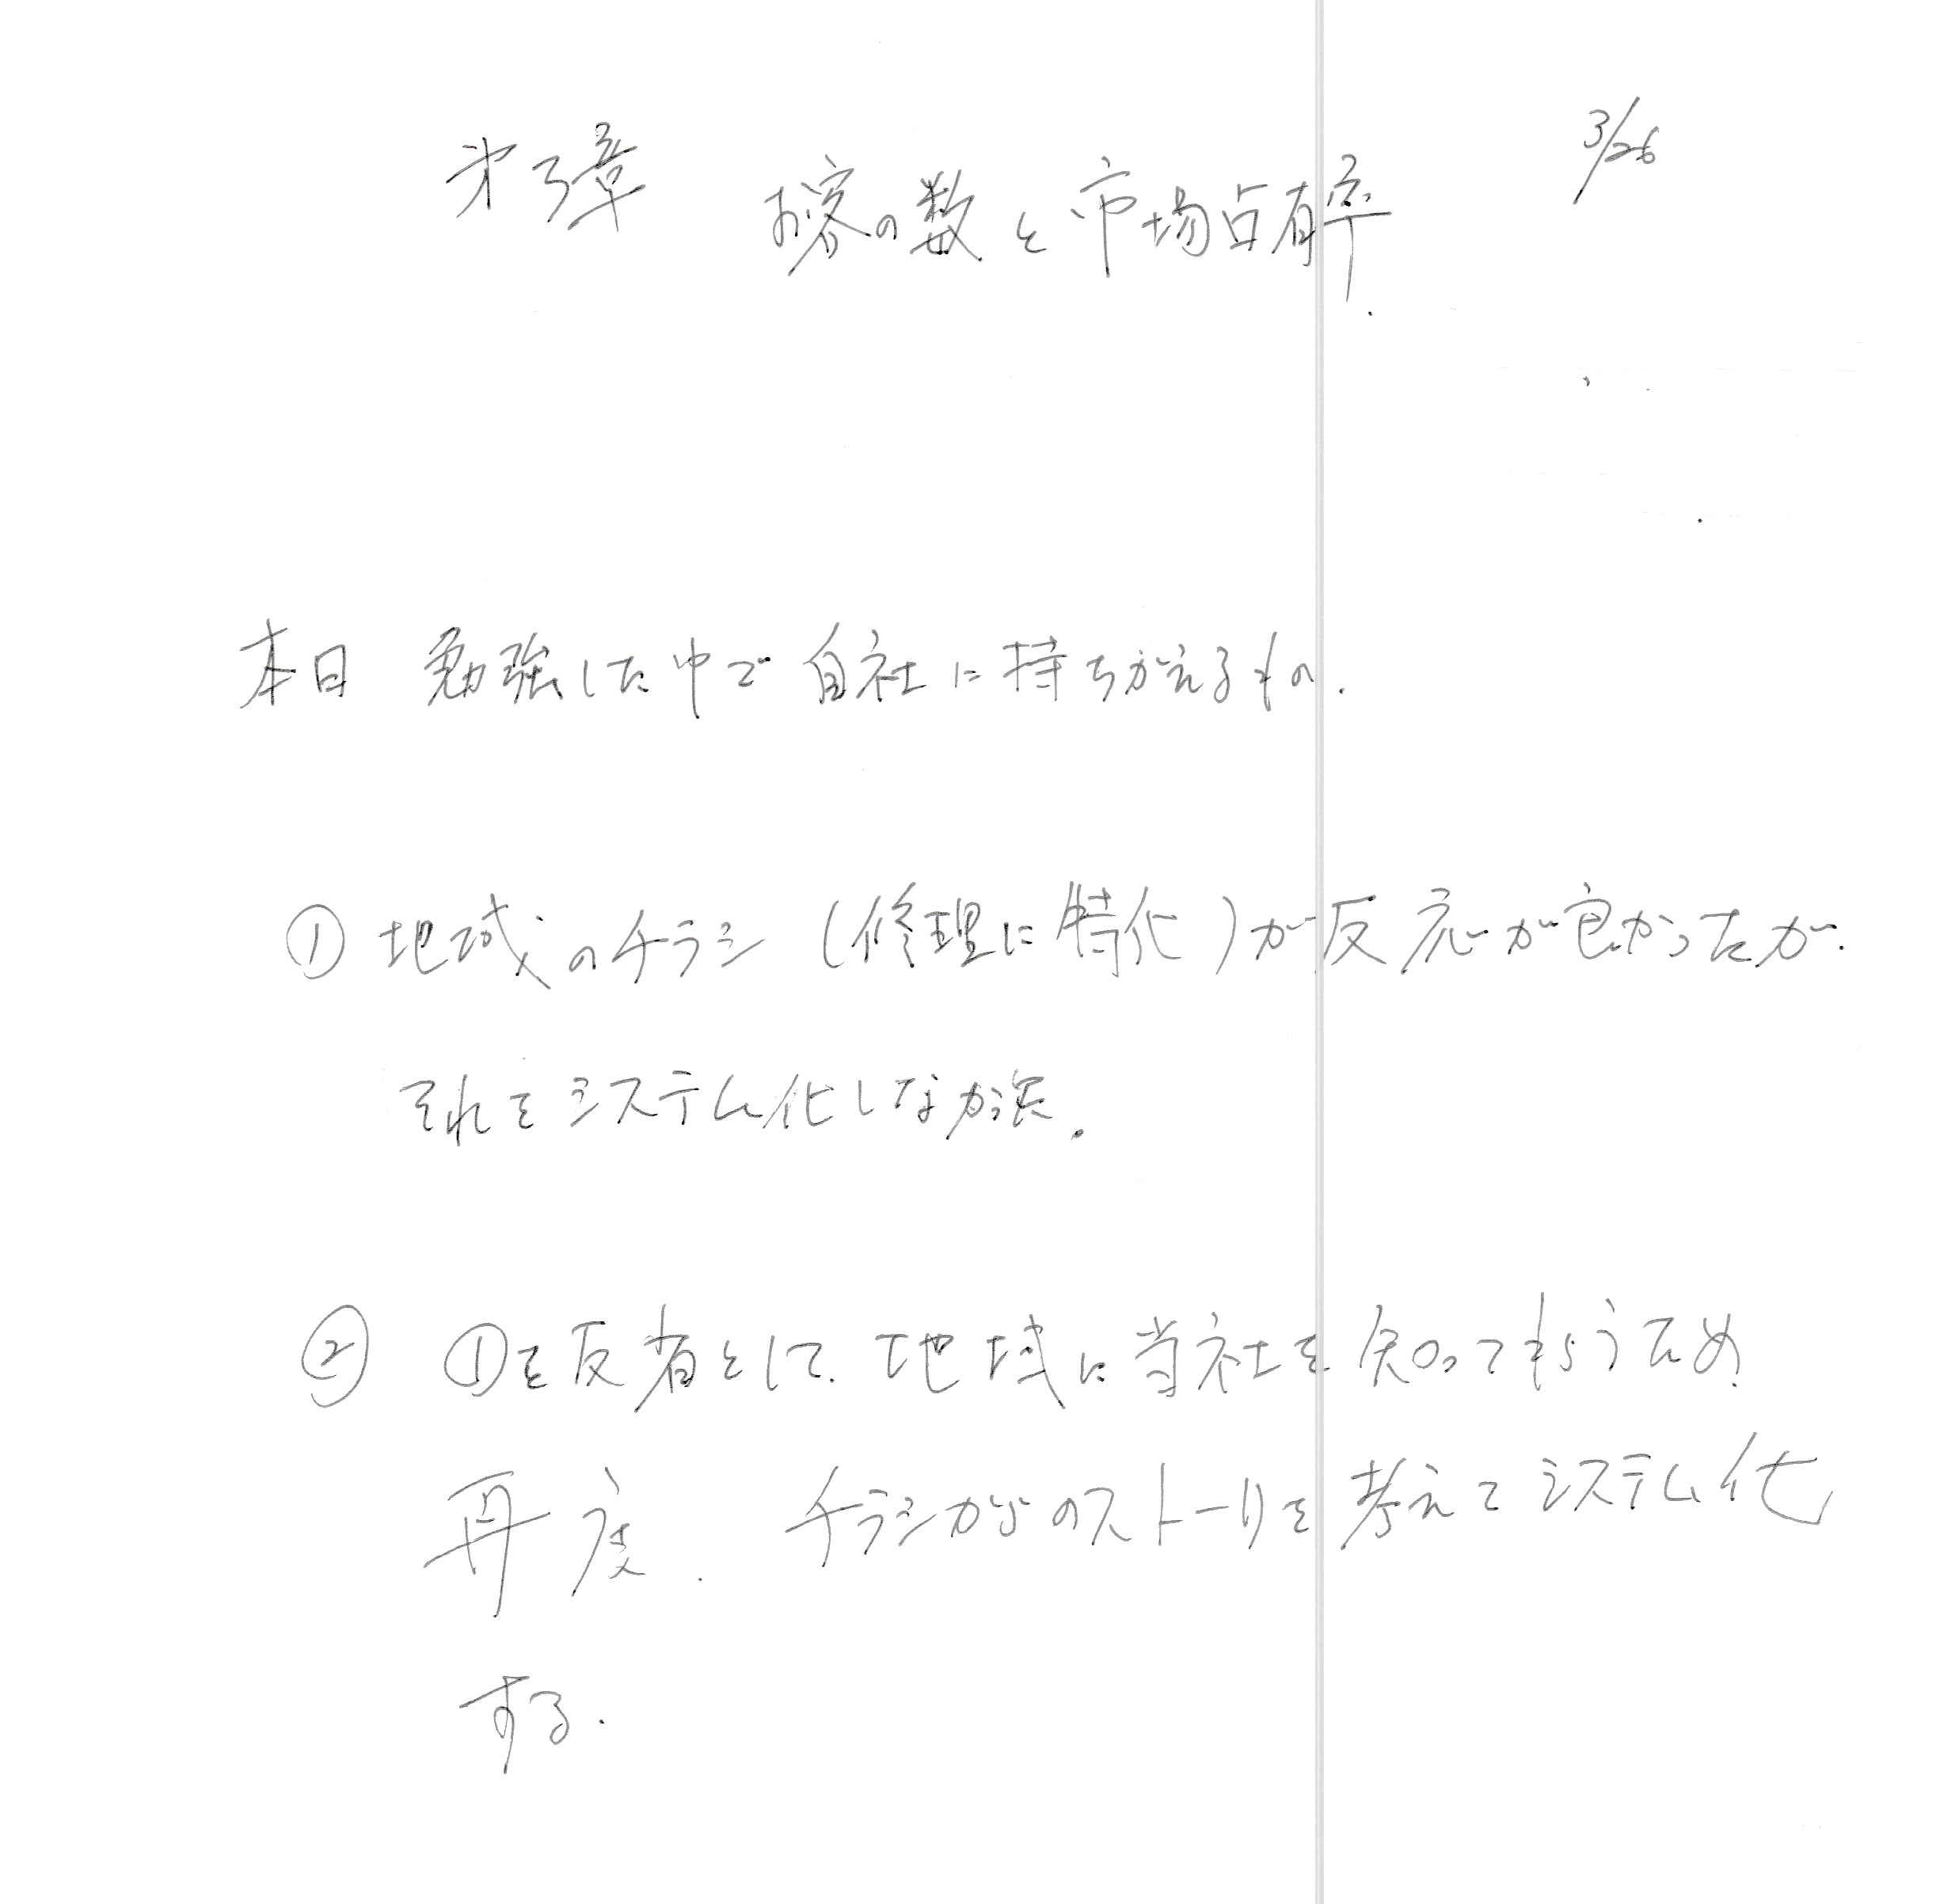 3/26
第3章 お客の数と市場占有率.
本日 勉強した中で自社に持ちかえるもの.
① 地域のチラシ (修理に特化)が反応が良かったが.
それをシステム化しなかった.
② ①を反省として. 地域に当社を知ってもらうため
再度. チラシからのストーリを考えてシステム化
する.